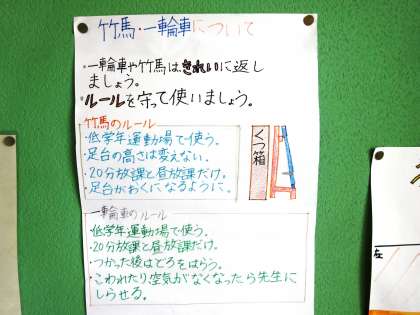 竹馬・一輪車について
・一輪車や竹馬はきれいに返し
ましょう。
・ルールを守って使いましょう。
竹馬のルール
・低学年運動場で使う。
・足台の高さは変えない。
・20分放課と昼放課だけ。
・足台がおくになるように。
くつ箱
一輪車のルール
・低学年運動場で使う。
・20分放課と昼放課だけ。
・つかった後はどろをはらう。
・こわれたり空気がなくなったら先生に
しらせる。
左